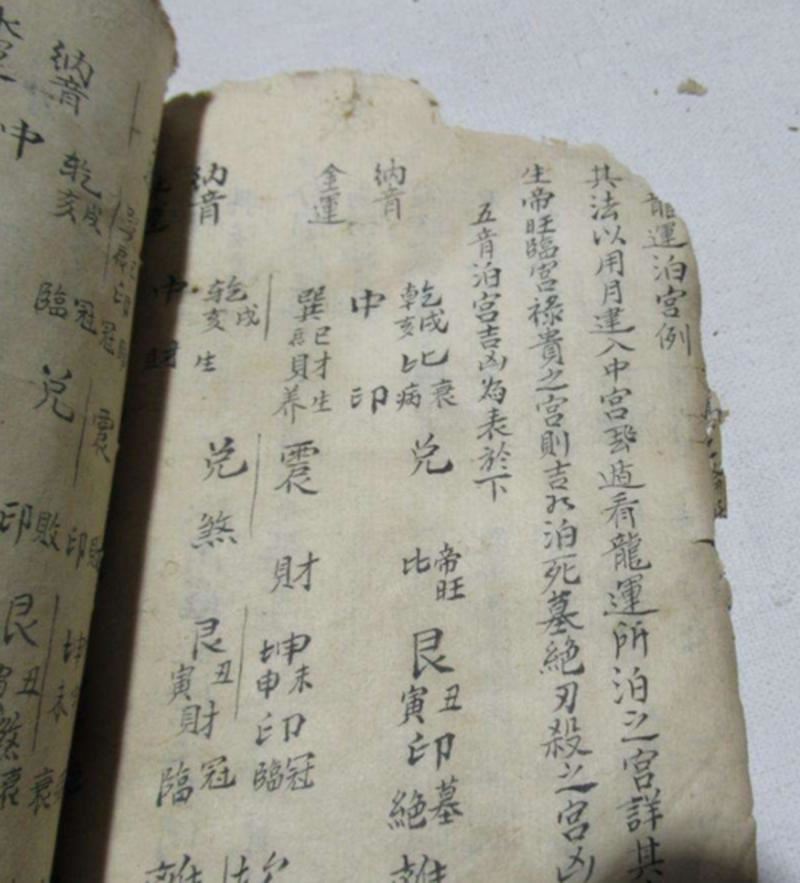 龍運泊宮例
其法以用月建入中宮順遁看龍運所泊之宮詳其
生帝旺臨官祿貴之宮則吉如泊死墓絕刃殺之宮凶
五音泊宮吉凶為表於下
納音 乾戌亥比衰病 兌 比帝旺 艮丑寅印墓絕 離
金運 中印
巽巳辰財生养 震 財 坤未申印冠臨
納音 乾戌亥生 兌 煞 艮丑寅財冠臨 離
中財
納音 乾戌亥冠臨 兌 印敗 艮丑寅煞衰
中
震